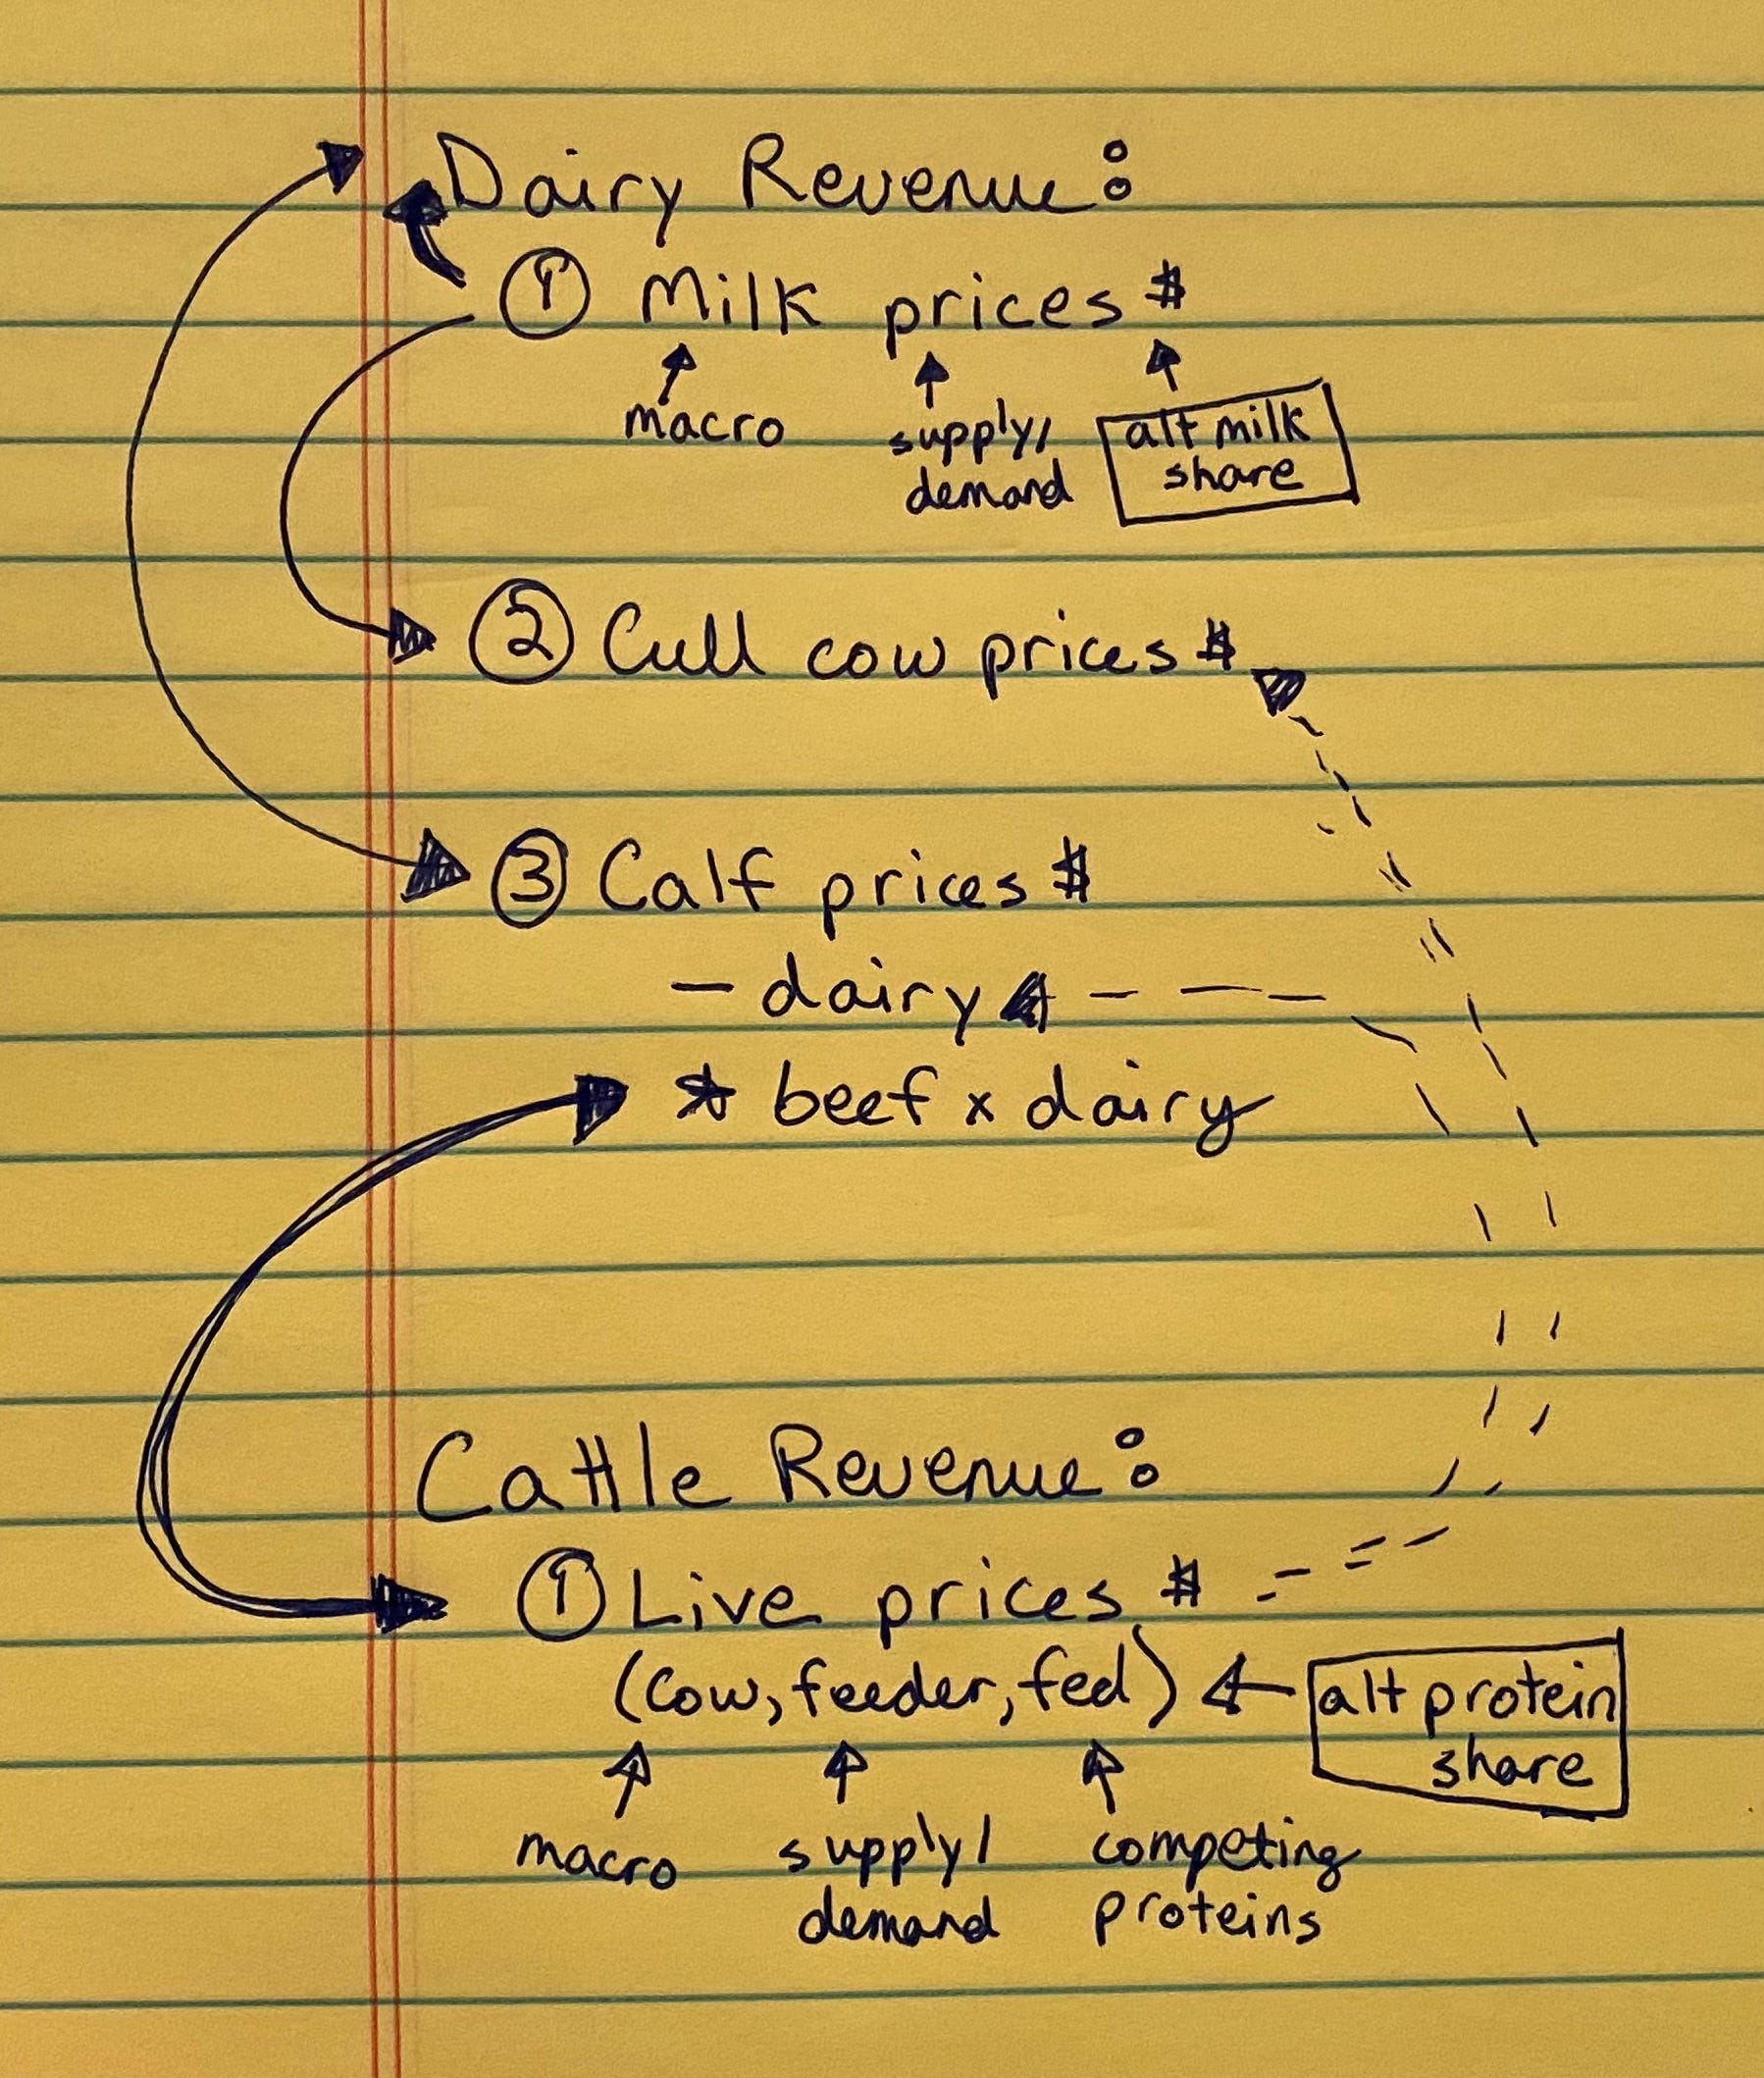 Dairy Revenue:
① Milk prices $
macro supply/ alt milk
demand share
② Cull cow prices $
③ Calf prices $
- dairy
* beef x dairy
Cattle Revenue:
① Live prices $
(cow, feeder, fed) alt protein
share
macro supply/ competing
demand proteins